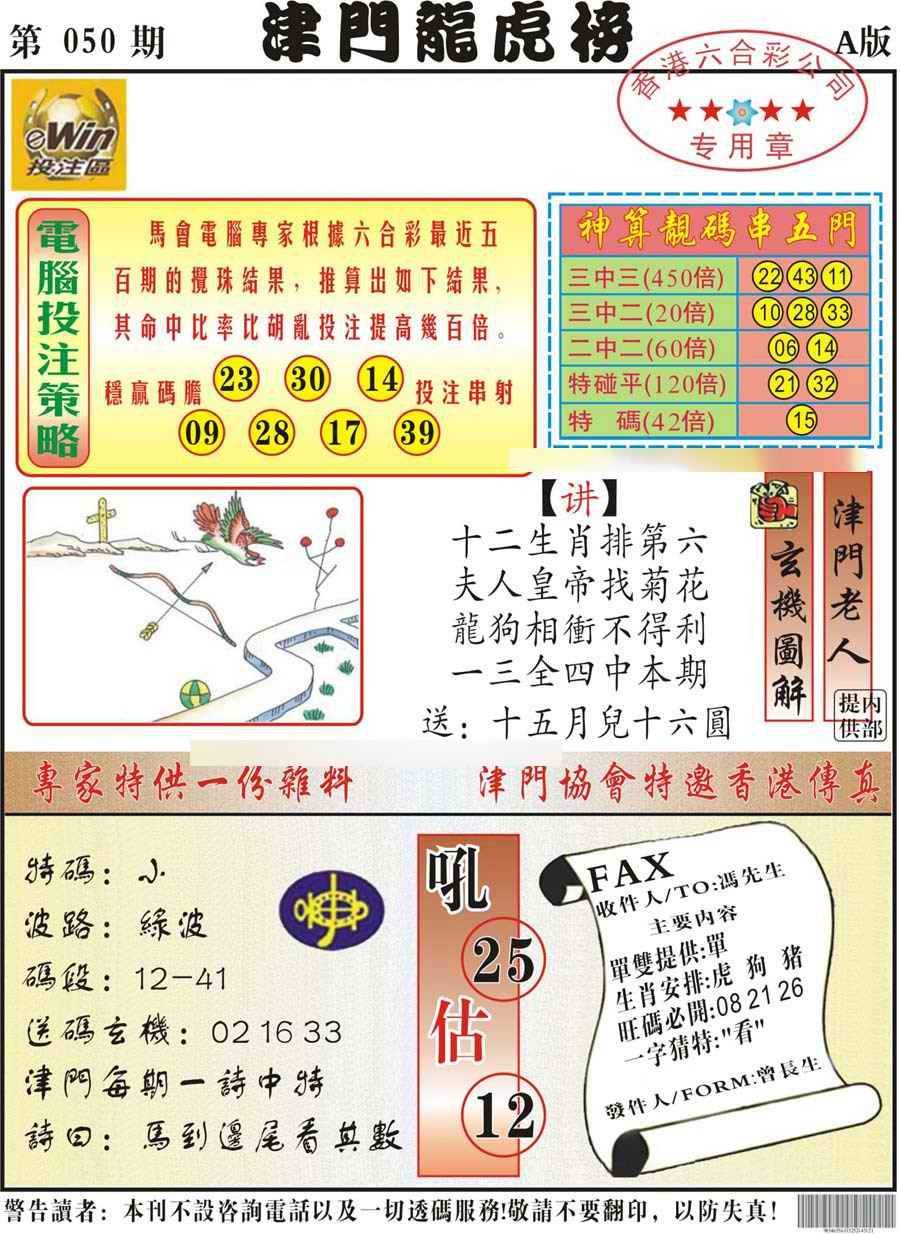 第 050 期
津門龍虎榜
A版
香港六合彩公司
专用章
eWin
投注區
電腦投注策略
馬會電腦專家根據六合彩最近五
百期的攪珠結果，推算出如下結果，
其命中比率比胡亂投注提高幾百倍。
穩贏碼膽 23 30 14 投注串射
09 28 17 39
神算靚碼串五門
三中三(450倍) 22 43 11
三中二(20倍) 10 28 33
二中二(60倍) 06 14
特碰平(120倍) 21 32
特 碼(42倍) 15
【讲】
十二生肖排第六
夫人皇帝找菊花
龍狗相衝不得利
一三全四中本期
送：十五月兒十六圓
玄機圖解
津門老人
提供
内部
專家特供一份雜料
津門協會特邀香港傳真
特碼：小
波路：綠波
碼段：12-41
送碼玄機：02 16 33
津門每期一詩中特
詩曰：馬到邊尾看其數
吼
25
估
12
FAX
收件人/TO:馮先生
主要内容
單雙提供:單
生肖安排:虎 狗 猪
旺碼必開:08 21 26
一字猜特:"看"
發件人/FORM:曾長生
警告讀者：本刊不設咨詢電話以及一切透碼服務!敬請不要翻印，以防失真!